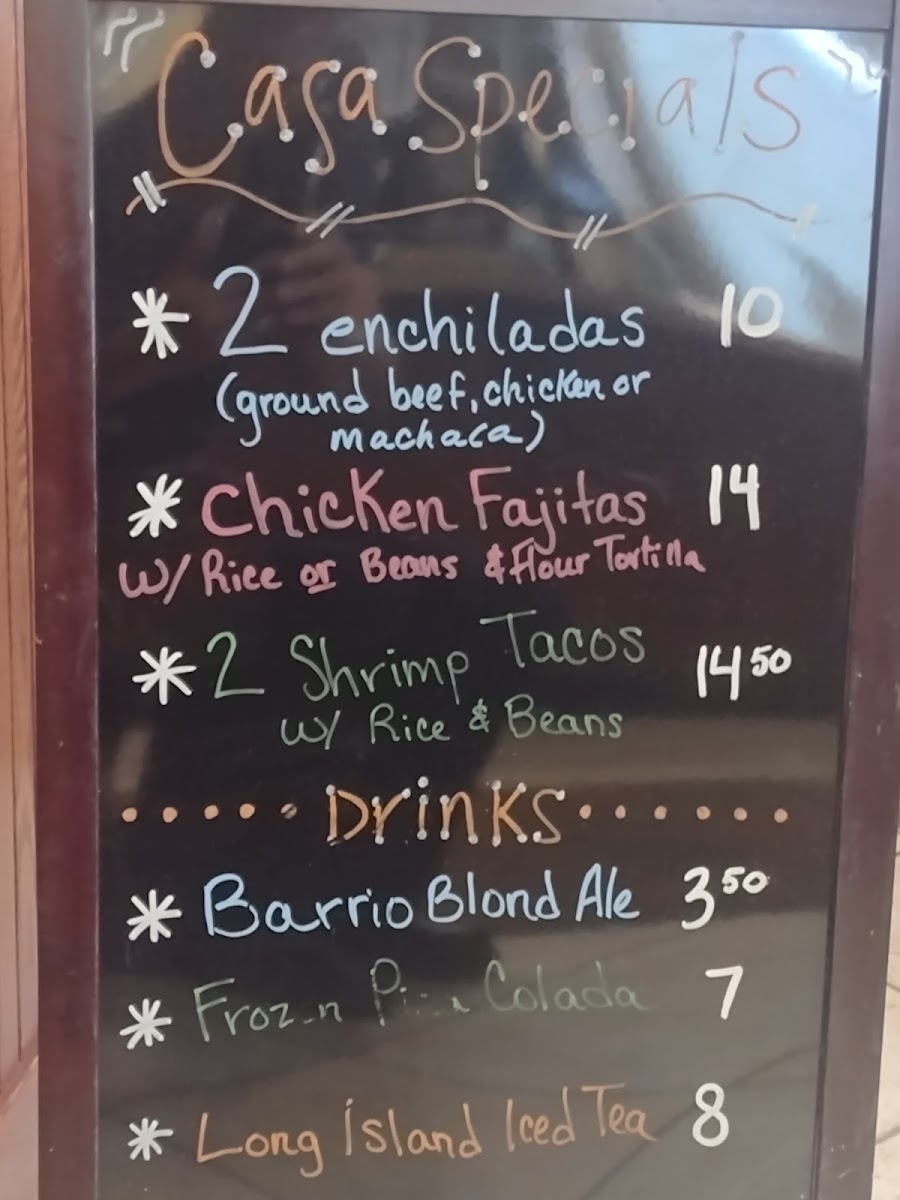 Casa Specials
* 2 enchiladas 10
(ground beef, chicken or
machaca)
* Chicken Fajitas 14
w/ Rice or Beans & Flour Tortilla
* 2 Shrimp Tacos 14 50
w/ Rice & Beans
Drinks
* Barrio Blond Ale 3 50
* Frozen Pina Colada 7
* Long Island Iced Tea 8